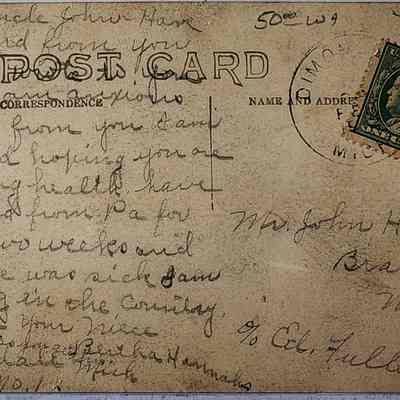 ncle John Have
d from you
POST CARD
am anxious
CORRESPONDENCE
from you I am
d hoping you are
g health, have
d from Pa for
wo weeks and
e was sick I am
g in the Country,
Your Niece
Bertha Hannah
Mich
50⁰⁰
NAME AND ADDRE
DIMON
MIC
Mr. John H
Bra
M
c/o Ed. Fulle